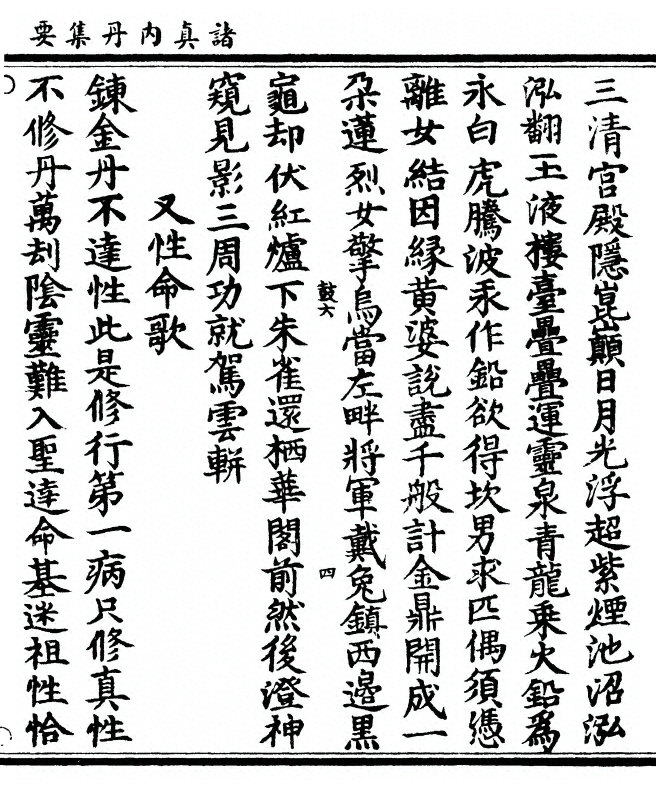 諸真内丹集要
三清宮殿隱崑顛日月光浮超紫煙池沼泓
泓翻玉液樓臺疊疊運靈泉青龍乗火鉛為
永白虎騰波汞作鉛欲得坎男求匹偶須憑
離女結因緣黄婆說盡千般計金鼎開成一
朶蓮烈女擎烏當左畔將軍戴兔鎮西邉黒
鼓六
四
龜却伏紅爐下朱雀還栖華閣前然後澄神
窺見影三周功就駕雲軿
又性命歌
鍊金丹不達性此是修行第一病只修真性
不修丹萬刦陰靈難入聖達命基迷祖性恰